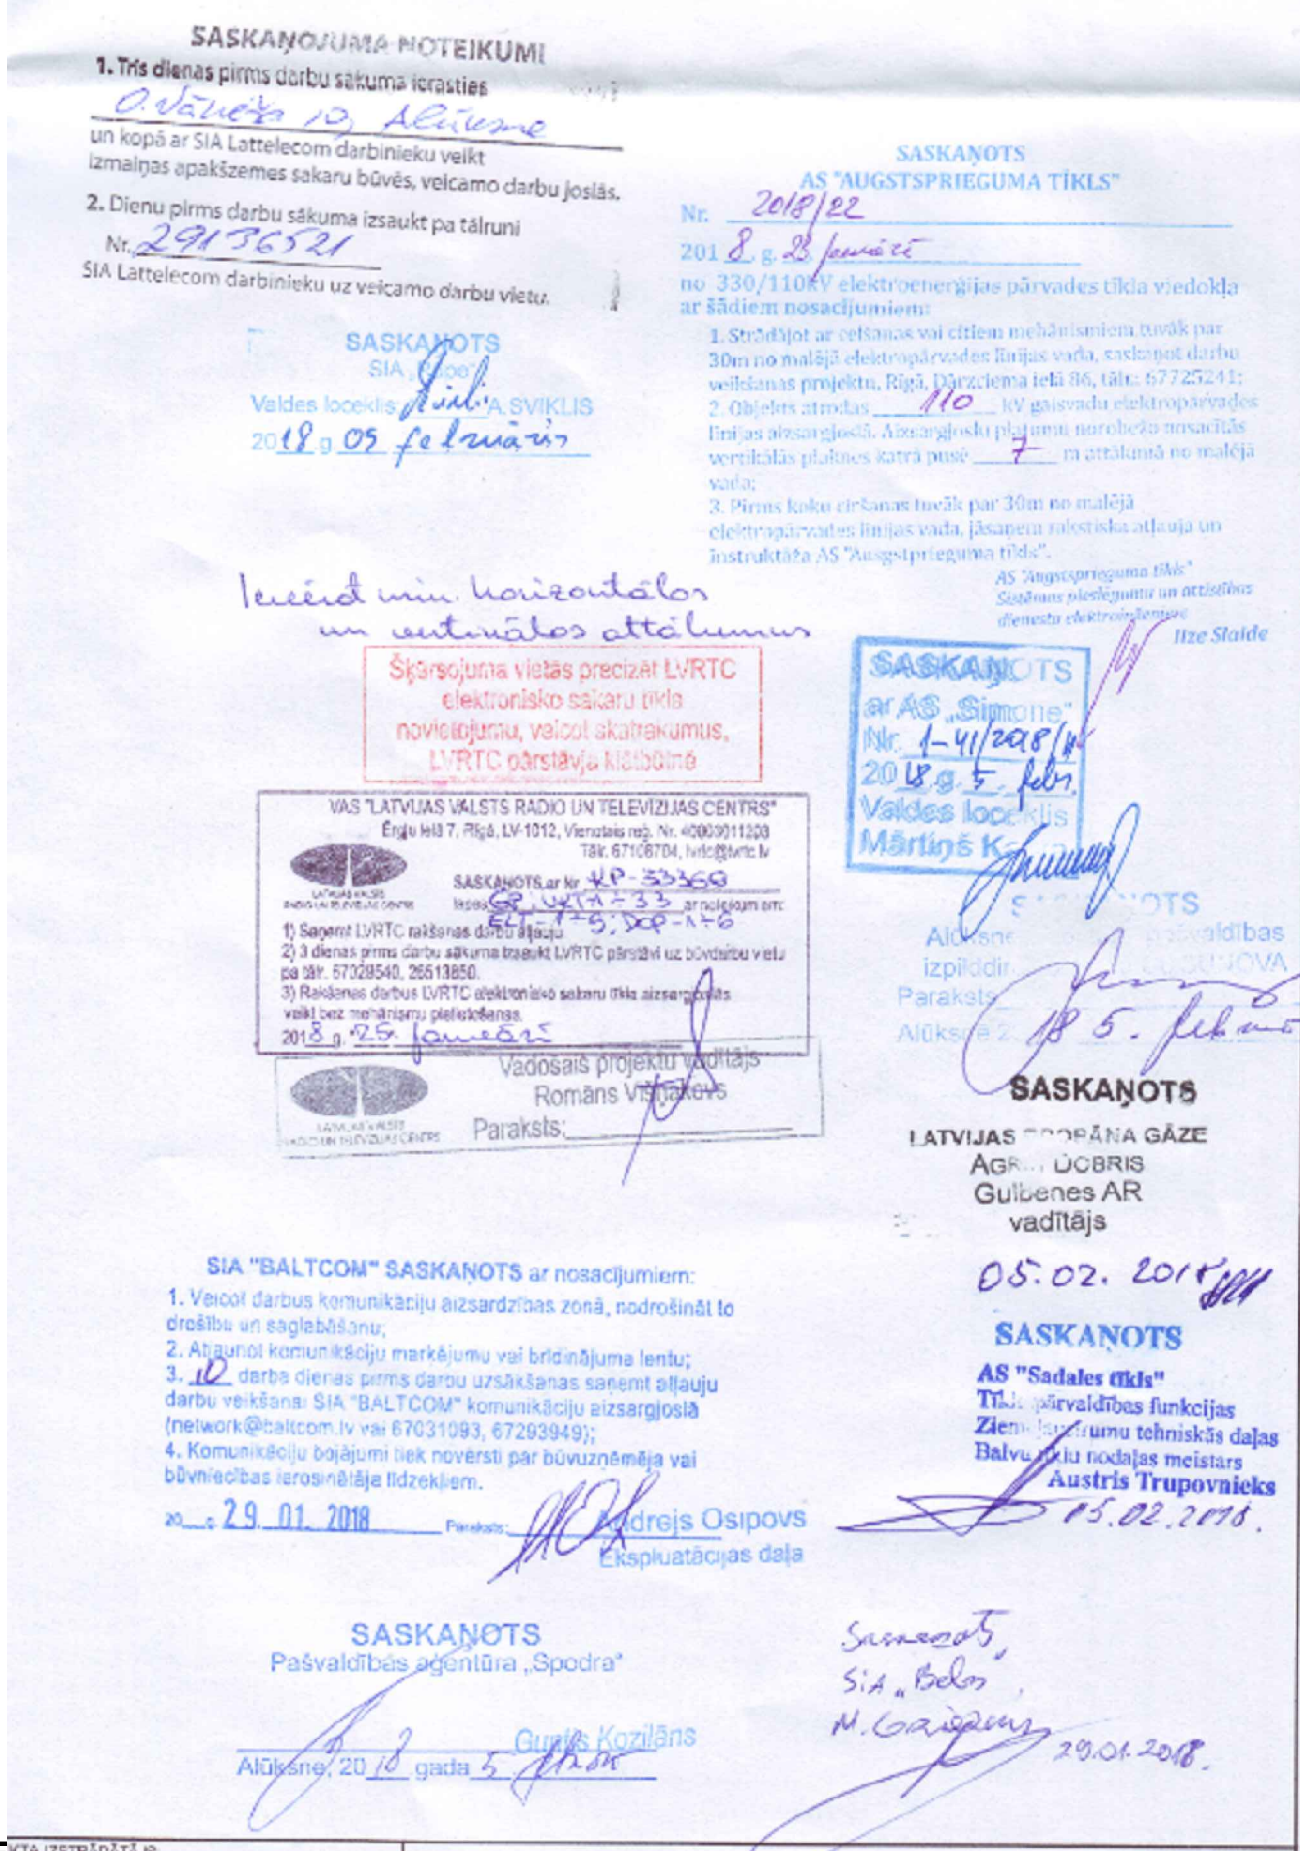 SASKAŅOJUMA NOTEIKUMI
1. Trīs dienas pirms darbu sākuma ierasties
O. Vācieša 10, Alūksne
un kopā ar SIA Lattelecom darbinieku veikt
izmaiņas apakšzemes sakaru būvēs, veicamo darbu joslās.
2. Dienu pirms darbu sākuma izsaukt pa tālruni
Nr. 29136521
SIA Lattelecom darbinieku uz veicamo darbu vietu.
SASKAŅOTS
SIA
Valdes loceklis A.SVIKLIS
2018 g 05 februāris
SASKAŅOTS
AS "AUGSTSPRIEGUMA TĪKLS"
Nr. 2018/22
2018. g. 23. janvārī
no 330/110kV elektroenerģijas pārvades tīkla viedokļa
ar šādiem nosacījumiem:
1. Strādājot ar celšanas vai citiem mehānismiem tuvāk par
30m no malējā elektropārvades līnijas vada, saskaņot darbu
veikšanas projektu, Rīgā, Dārzciema ielā 86, tālr.: 67725241;
2. Objekts atrodas 110 kV gaisvadu elektropārvades
līnijas aizsargjoslā. Aizsargjoslu platumu norobežo nosacītās
vertikālās plaknes katrā pusē 7 m attālumā no malējā
vada;
3. Pirms koku ciršanas tuvāk par 30m no malējā
elektropārvades līnijas vada, jāsaņem rakstiska atļauja un
instruktāža AS "Augstsprieguma tīkls".
AS "Augstsprieguma tīkls"
Sistēmas pieslēgumu un attīstības
dienesta elektroinženiere
Ilze Slaide
Ievērot min. horizontālos
un vertikālos attālumus
Šķērsojuma vietās precizēt LVRTC
elektronisko sakaru tīkla
novietojumu, veicot skatrakumus,
LVRTC pārstāvja klātbūtnē
SASKAŅOTS
ar AS „Simone"
Nr. 1-41/2018/
2018.g. 5. febr.
Valdes loceklis
Mārtiņš
VAS "LATVIJAS VALSTS RADIO UN TELEVĪZIJAS CENTRS"
Ērgļu ielā 7, Rīgā, LV-1012, Vienotais reģ. Nr. 40003011203
Tālr. 67108704, lvrtc@lvrtc.lv
LATVIJAS VALSTS
RADIO UN TELEVĪZIJAS CENTRS
SASKAŅOTS ar Nr KP-33360
lapas GP; UKT-1÷33 ar noteikumiem:
ELT-1÷5; DOP-1÷6
1) Saņemt LVRTC rakšanas darbu atļauju
2) 3 dienas pirms darbu sākuma izsaukt LVRTC pārstāvi uz būvdarbu vietu
pa tālr. 67029540, 26513850.
3) Rakšanas darbus LVRTC elektronisko sakaru tīkla aizsargjoslās
veikt bez mehānismu pielietošanas.
2018 g. 25. janvārī
Vadošais projektu vadītājs
Romāns Višņakovs
LATVIJAS VALSTS
RADIO UN TELEVĪZIJAS CENTRS
Paraksts:
OTS
Alūksne pašvaldības
izpilddir
Paraksts
Alūksnē 2 18 5.
SASKAŅOTS
LATVIJAS PROPĀNA GĀZE
DOBRIS
Gulbenes AR
vadītājs
05.02. 2018
SIA "BALTCOM" SASKAŅOTS ar nosacījumiem:
1. Veicot darbus komunikāciju aizsardzības zonā, nodrošināt to
drošību un saglabāšanu;
2. Atjaunot komunikāciju marķējumu vai brīdinājuma lentu;
3. 10 darba dienas pirms darbu uzsākšanas saņemt atļauju
darbu veikšanai SIA "BALTCOM" komunikāciju aizsargjoslā
(network@baltcom.lv vai 67031093, 67293949);
4. Komunikāciju bojājumi tiek novērsti par būvuzņēmēja vai
būvniecības ierosinātāja līdzekļiem.
20 g. 29. 01. 2018 Paraksts: Andrejs Osipovs
Ekspluatācijas daļa
SASKAŅOTS
AS "Sadales tīkls"
Tīkla pārvaldības funkcijas
Ziemeļaustrumu tehniskās daļas
Balvu tīklu nodaļas meistars
Austris Trupovnieks
05.02.2018.
SASKAŅOTS
Pašvaldības aģentūra „Spodra"
Guntis Kozilāns
Alūksnē, 2018 gada 5.
Saskaņots,
SIA „
29.01.2018.